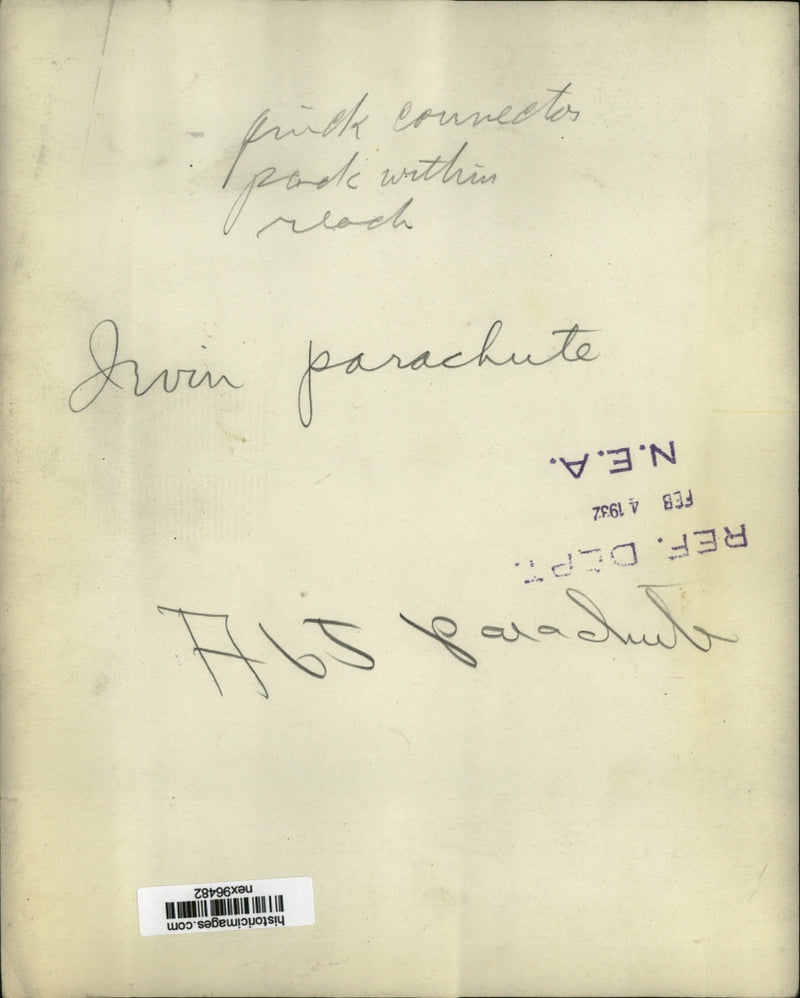 quick connector
pack within
reach
Irvin parachute
N.E.A.
FEB 4 1932
REF. DEPT.
A65 parachute
historicimages.com
nex96482